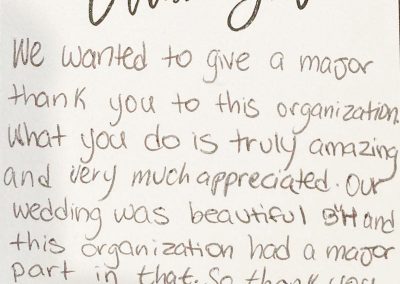 We wanted to give a major
thank you to this organization.
What you do is truly amazing
and very much appreciated. Our
wedding was beautiful B"H and
this organization had a major
part in that. So thank you